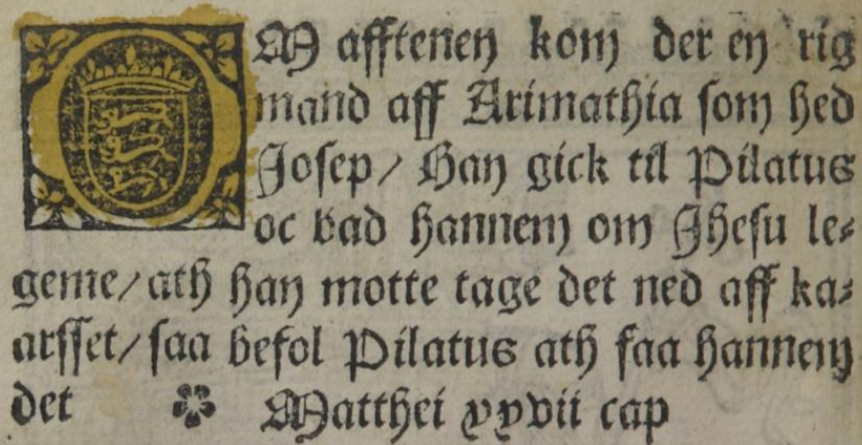 OM afftenen kom der en rig
mand aff Arimathia som hed
Josep/ Han gick til Pilatus
oc bad hannem om Jhesu le⸗
geme/ ath han motte tage det ned aff ka⸗
arsset/ saa befol Pilatus ath faa hannem
det ✽ Matthei xxvii cap